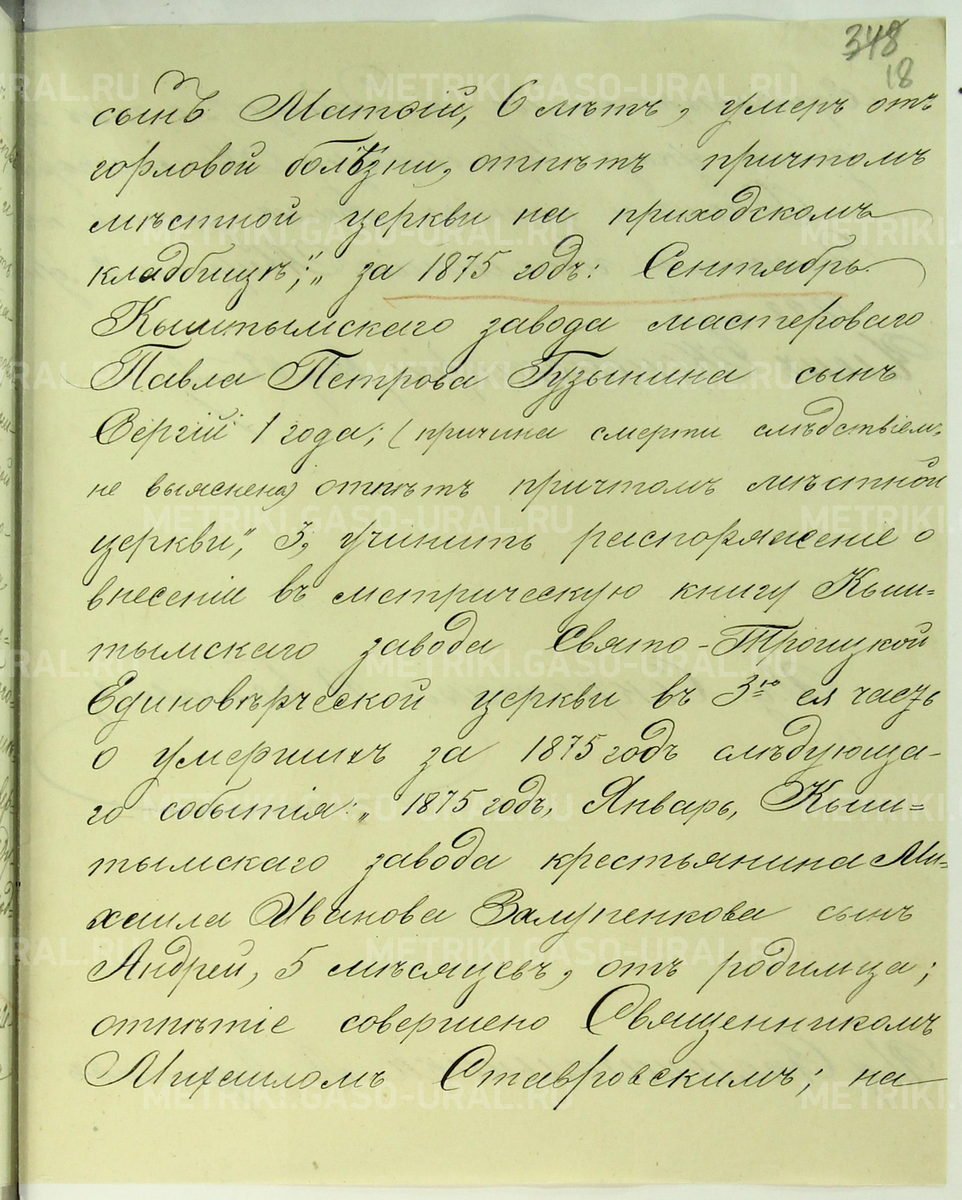 348
18
сынъ Матѳій, 6 лѣтъ, умеръ отъ
горловой болѣзни, отпѣтъ причтомъ
мѣстной церкви на приходскомъ
кладбищѣ;„ за 1875 годъ: Сентябрь.
Кыштымскаго завода мастероваго
Павла Петрова Гузынина сынъ
Сергій 1 года; (причина смерти слѣдствіемъ
не выяснена) отпѣтъ причтомъ мѣстной
церкви", 3, учинить распоряженіе о
внесеніи въ метрическую книгу Кыш=
тымскаго завода Свято-Троицкой
Единовѣрческой церкви въ 3ю ея часть
о умершихъ за 1875 годъ слѣдующа-
го событія: „1875 годъ, Январь, Кыш=
тымскаго завода крестьянина Ми=
хаила Иванова Залупенкова сынъ
Андрей, 5 мѣсяцевъ, отъ родимца;
отпѣтіе совершено Священникомъ
Михаиломъ Ставровскимъ; на
METRIKI.GASO-URAL.RU